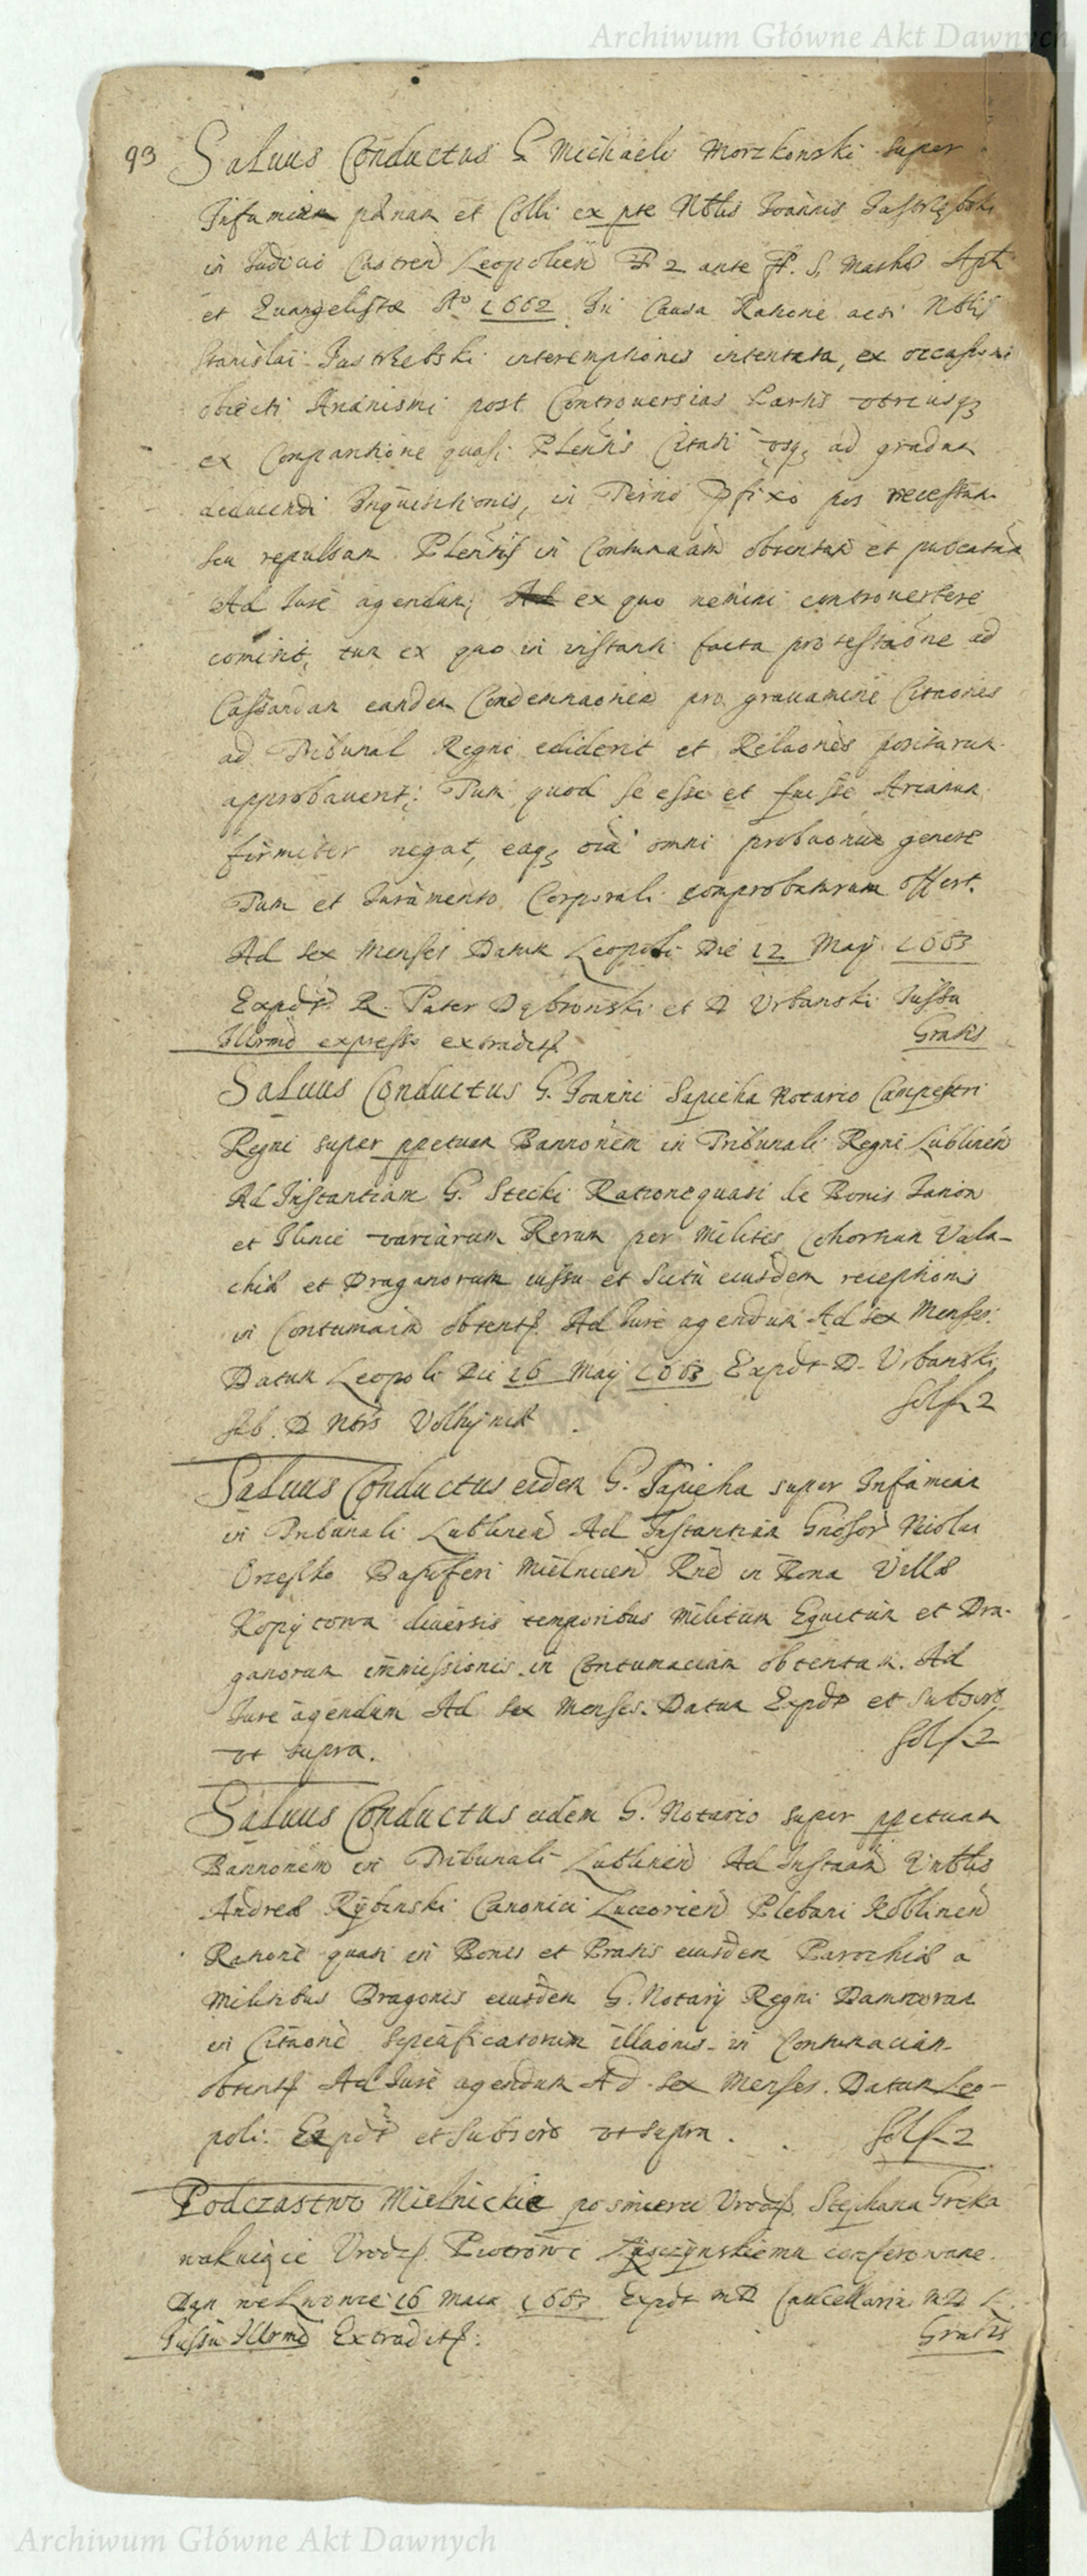 Archiwum Główne Akt Dawnych
93 Saluus Conductus G. Michaeli Morzkowski super
Infamiam pænam et Colli ex pte Nblis Joannis Jastrzębski
in Judicio Castren Leopolien F 2 ante F. S. Mathæi Apli
et Euangelistæ Aº 1662 In Causa Ratione acsi Nblis
Stanislai Jastrzebski interemptionis intentata, ex occasione
obiecti Arianismi post Controuersias Partis vtriusq3
ex Comparitione quasi Plentis Citati vsq3 ad gradum
deducendi Inquisitionis, in Termo Pfixo per recessum
seu repulsam Plentis in Contumaciam obtentam et publicatam
Ad Jure agendum; Ad ex quo nemini controuertere
comisit, tum ex quo in instanti facta protestaone ad
Cassandam eandem Condemnaonem pro grauamine Citaones
ad Tribunal Regni ediderit et Relaones positarum
approbauerit; Tum quod se esse et fuisse Arianum
firmiter negat, eaq3 oia omni probaonum genere
Tum et Juramento Corporali comprobaturum offert.
Ad sex Menses Datum Leopoli Die 12 Maij 1663
Expdt R. Pater Dębrowski et D Vrbanski Jussu
Illrmo expresso extradits Gratis
Saluus Conductus G. Joanni Sapieha Notario Campestri
Regni super ppetuam Bannonem in Tribunali Regni Lublinen
Ad Instantiam G. Stecki Ratione quasi de Bonis Janion
et Ilinie variarum Rerum per Milites Cohortium Vala-
chiæ et Draganorum iussu et Scitu eiusdem receptionis
in Contumaciam obtents Ad Jure agendum Ad sex Menses.
Datum Leopoli Die 16 Maij 1663 Expdt D. Vrbanski
Sub. D Ntrs Volhyniæ Solf 2
Saluus Conductus eidem G. Sapieha super Infamiam
in Tribunali Lublinen Ad Instantiam Gnosor Nicolai
Orzeszko Dapiferi Mielnicien Rne in Bona Villæ
Kopytowa diuersis temporibus Militum Equitum et Dra-
ganorum immissionis in Contumaciam obtentam. Ad
Jure agendum Ad sex Menses. Datum Expdt et subscro
vt supra. Solf 2
Saluus Conductus eidem G. Notario super ppetuam
Bannonem in Tribunali Lublinen Ad Instaam Vnblis
Andreæ Rybinski Canonici Luceorien Plebani Koblinen
Ratione quasi in Bonis et Pratis eiusdem Parochiæ a
Militibus Dragonis eiusdem G. Notarij Regni Damnorum
in Citaone specificatorum illaonis in Contumaciam
obtents Ad Jure agendum Ad sex Menses. Datum Leo-
poli. Expdt et Subscro vt supra. Solf 2
Podczastwo Mielnickie po smierci Vrodz. Stephana Greka
wakuiące Vrodz. Piotrowi conferowane.
Dan we Lwowie 16 Maia 1663 Expdt MD Cancellaria MD L.
Jussu Illrmo Extradits. Gratis
Archiwum Główne Akt Dawnych